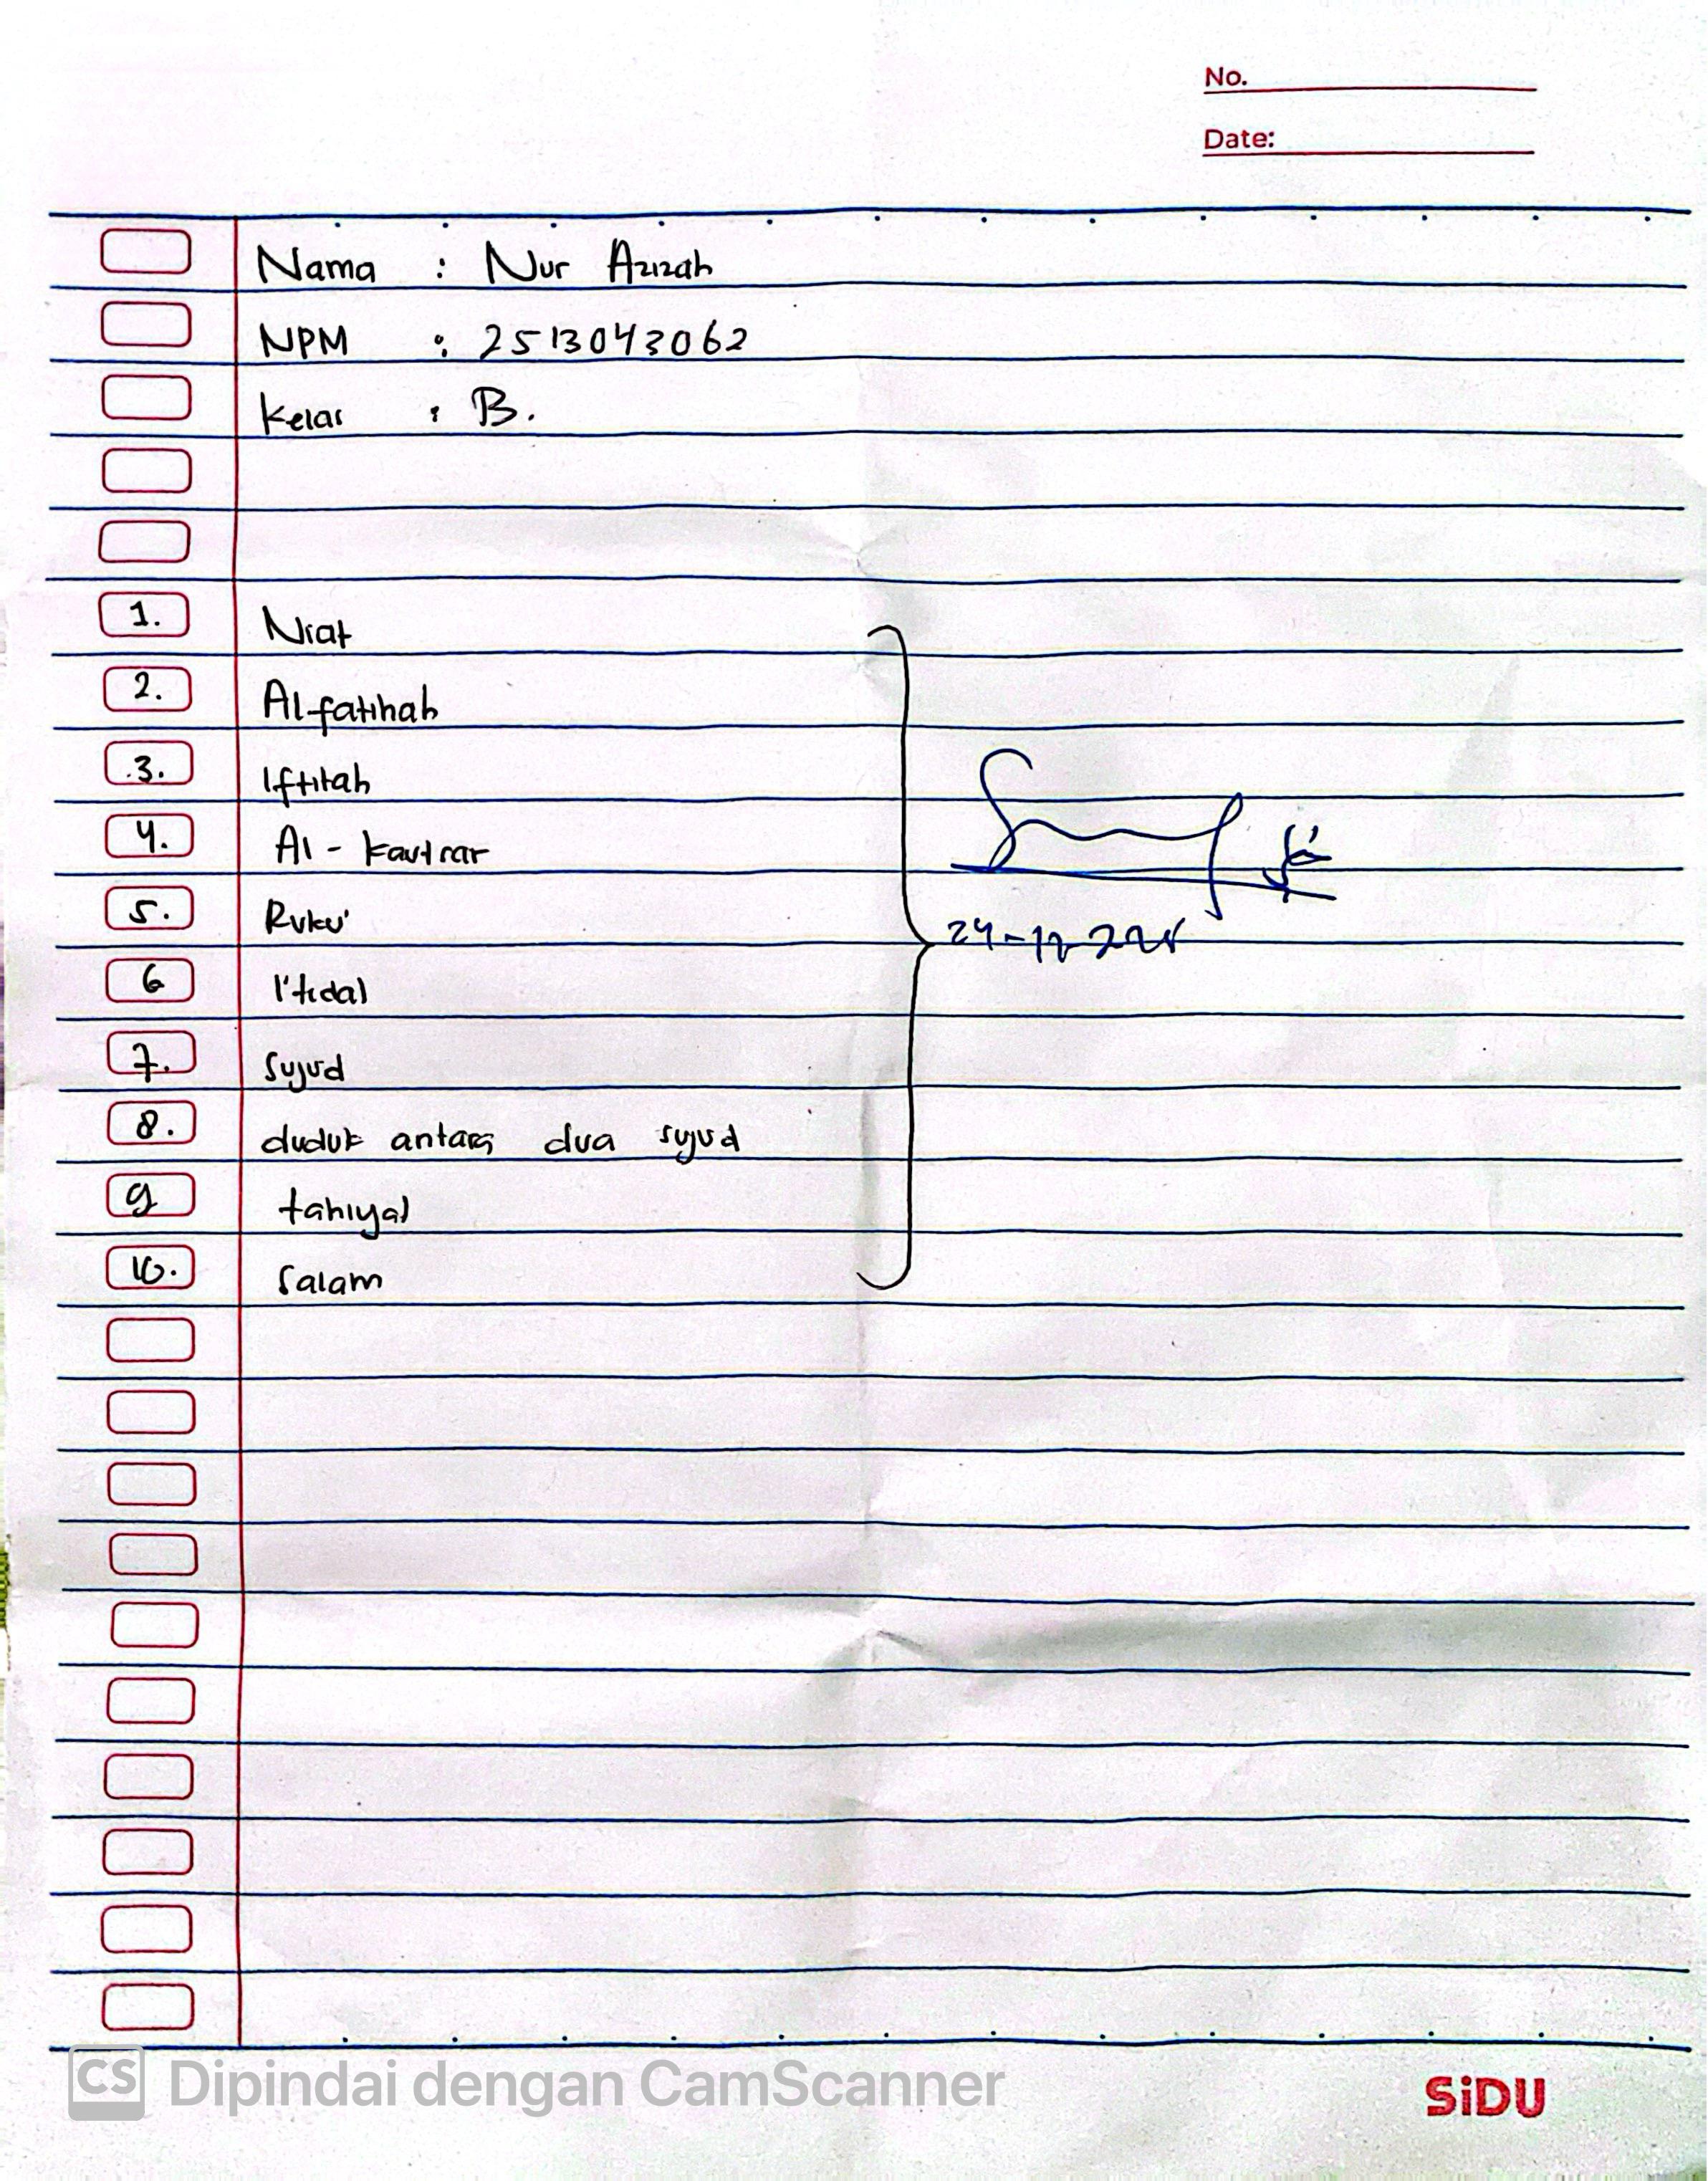 No.
Date:
Nama : Nur Azizah
NPM : 2513043062
Kelas : B.
1. Niat
2. Alfatihah
3. Iftitah
4. Al-kautsar
5. Ruku'
6 I'tidal
7. Sujud
8. duduk antara dua sujud
9 tahiyat
10. Salam
CS Dipindai dengan CamScanner
SiDU